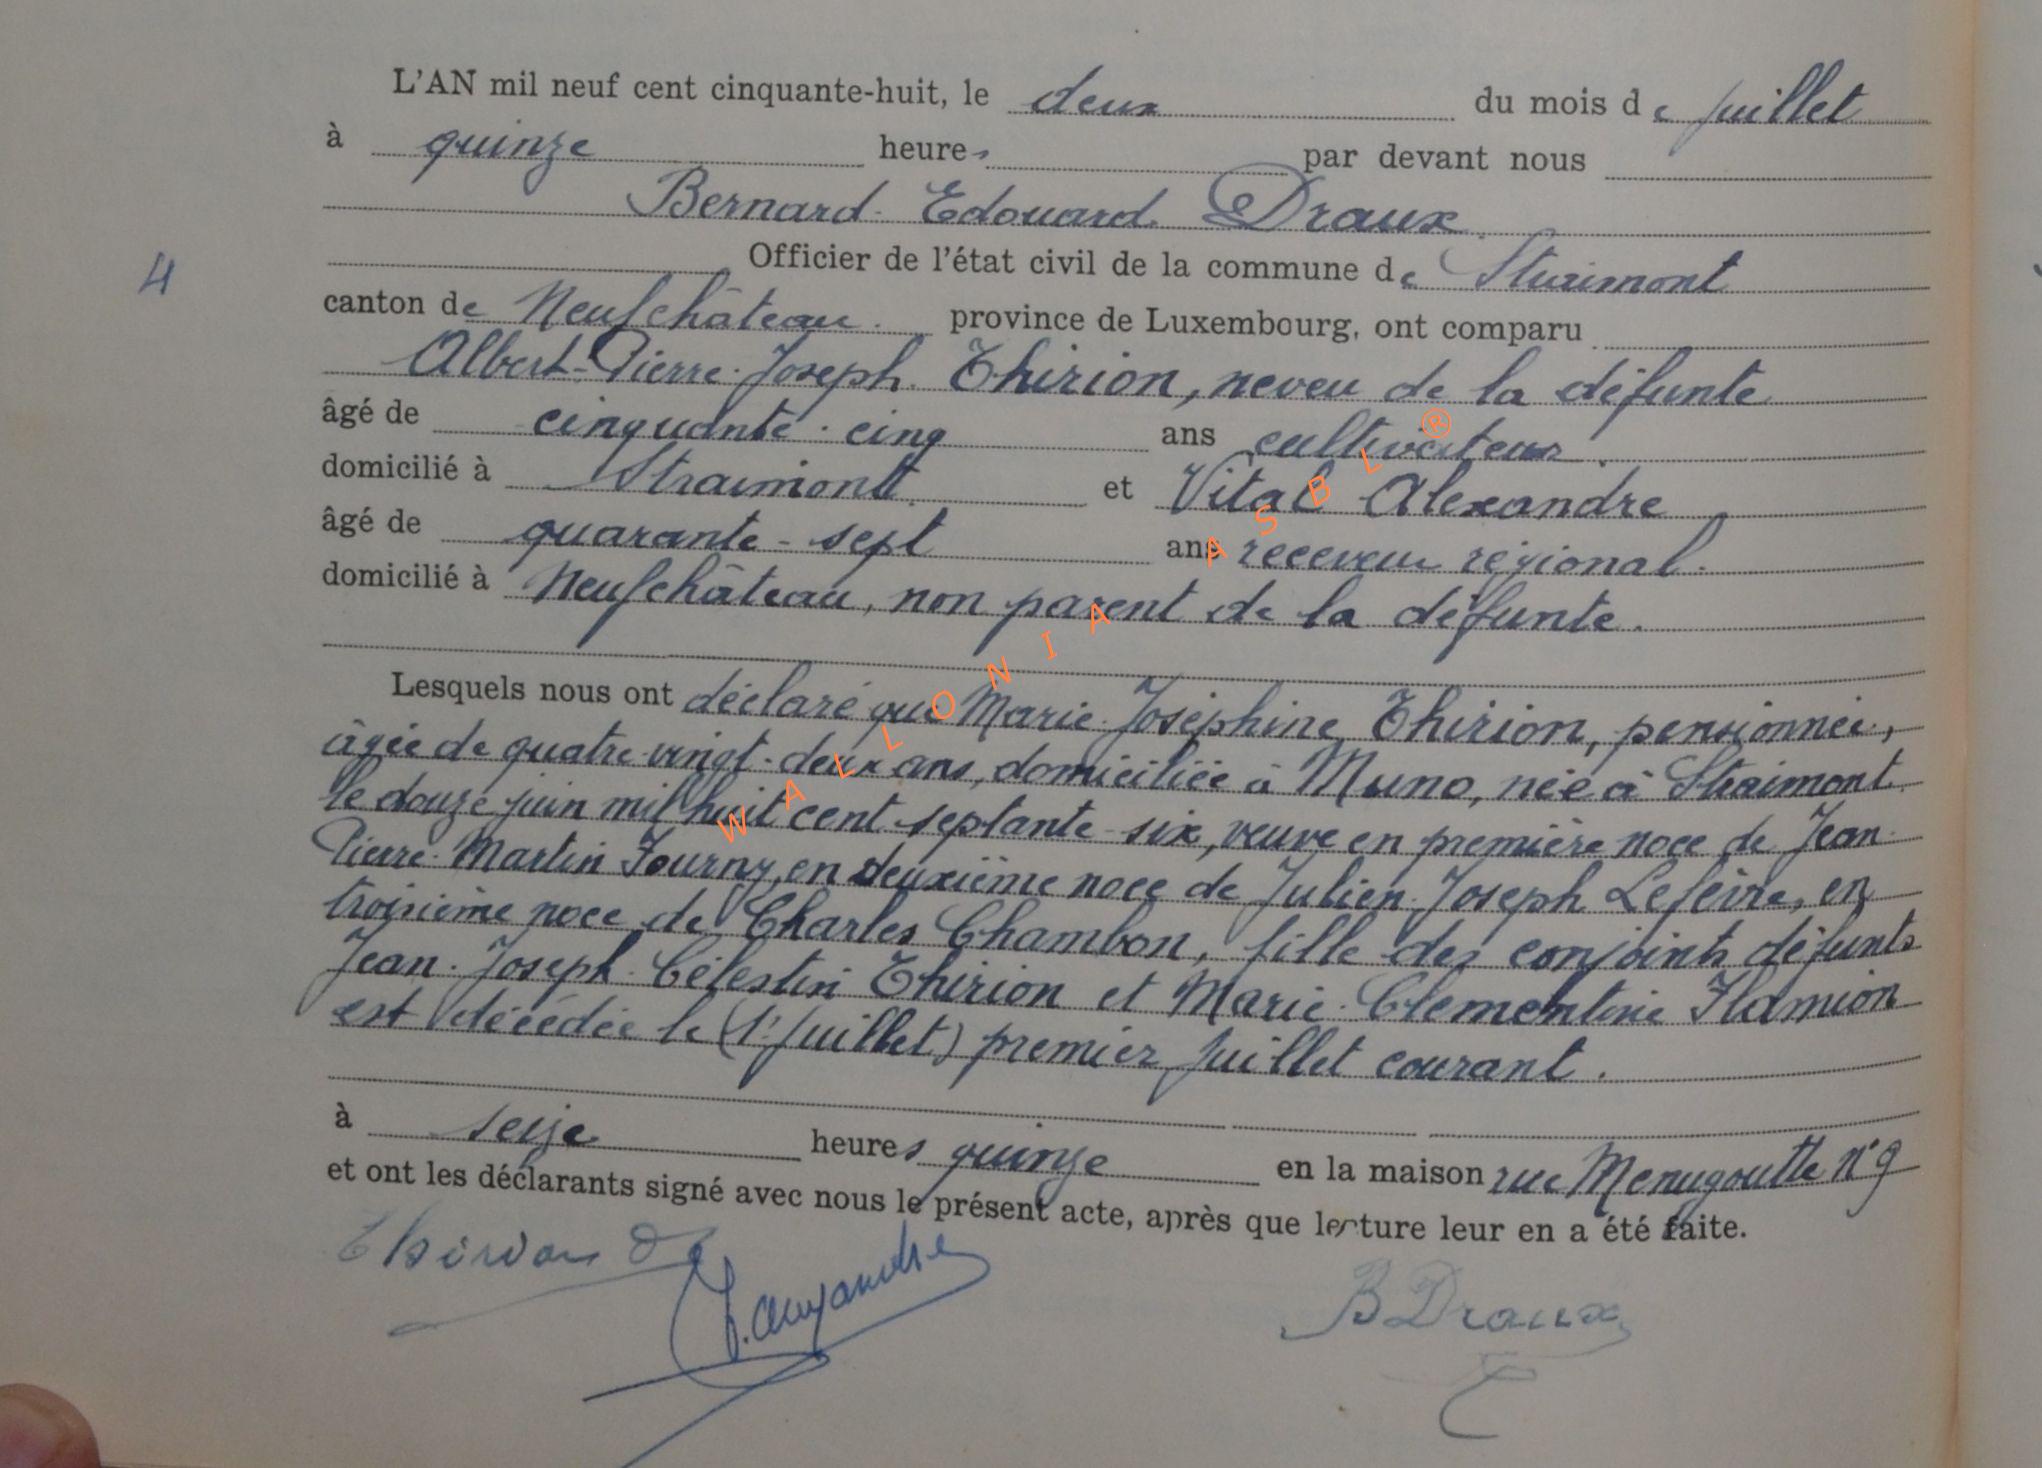 L'AN mil neuf cent cinquante-huit, le deux du mois de juillet
à quinze heures par devant nous
Bernard Edouard Draux
4
Officier de l'état civil de la commune de Straimont
canton de Neufchâteau. province de Luxembourg, ont comparu
Albert-Pierre-Joseph Thirion, neveu de la défunte
âgé de cinquante-cinq ans cultivateur.
domicilié à Straimont et Vital Alexandre
âgé de quarante-sept ans receveur régional.
domicilié à Neufchâteau, non parent de la défunte.
Lesquels nous ont déclaré que Marie-Joséphine Thirion, pensionnée,
âgée de quatre-vingt-deux ans, domiciliée à Muno, née à Straimont
le douze juin mil huit cent septante-six, veuve en première noce de Jean
Pierre-Martin Fourny, en deuxième noce de Julien-Joseph Lefèvre, en
troisième noce de Charles Chambon, fille des conjoints défunts
Jean-Joseph-Célestin Thirion et Marie-Clementine Flamion
est décédée le (1r juillet) premier juillet courant.
à seize heures quinze en la maison rue Menugoutte n°9
et ont les déclarants signé avec nous le présent acte, après que lecture leur en a été faite.
Thirion
B Draux
WALLONIA ASBL ®